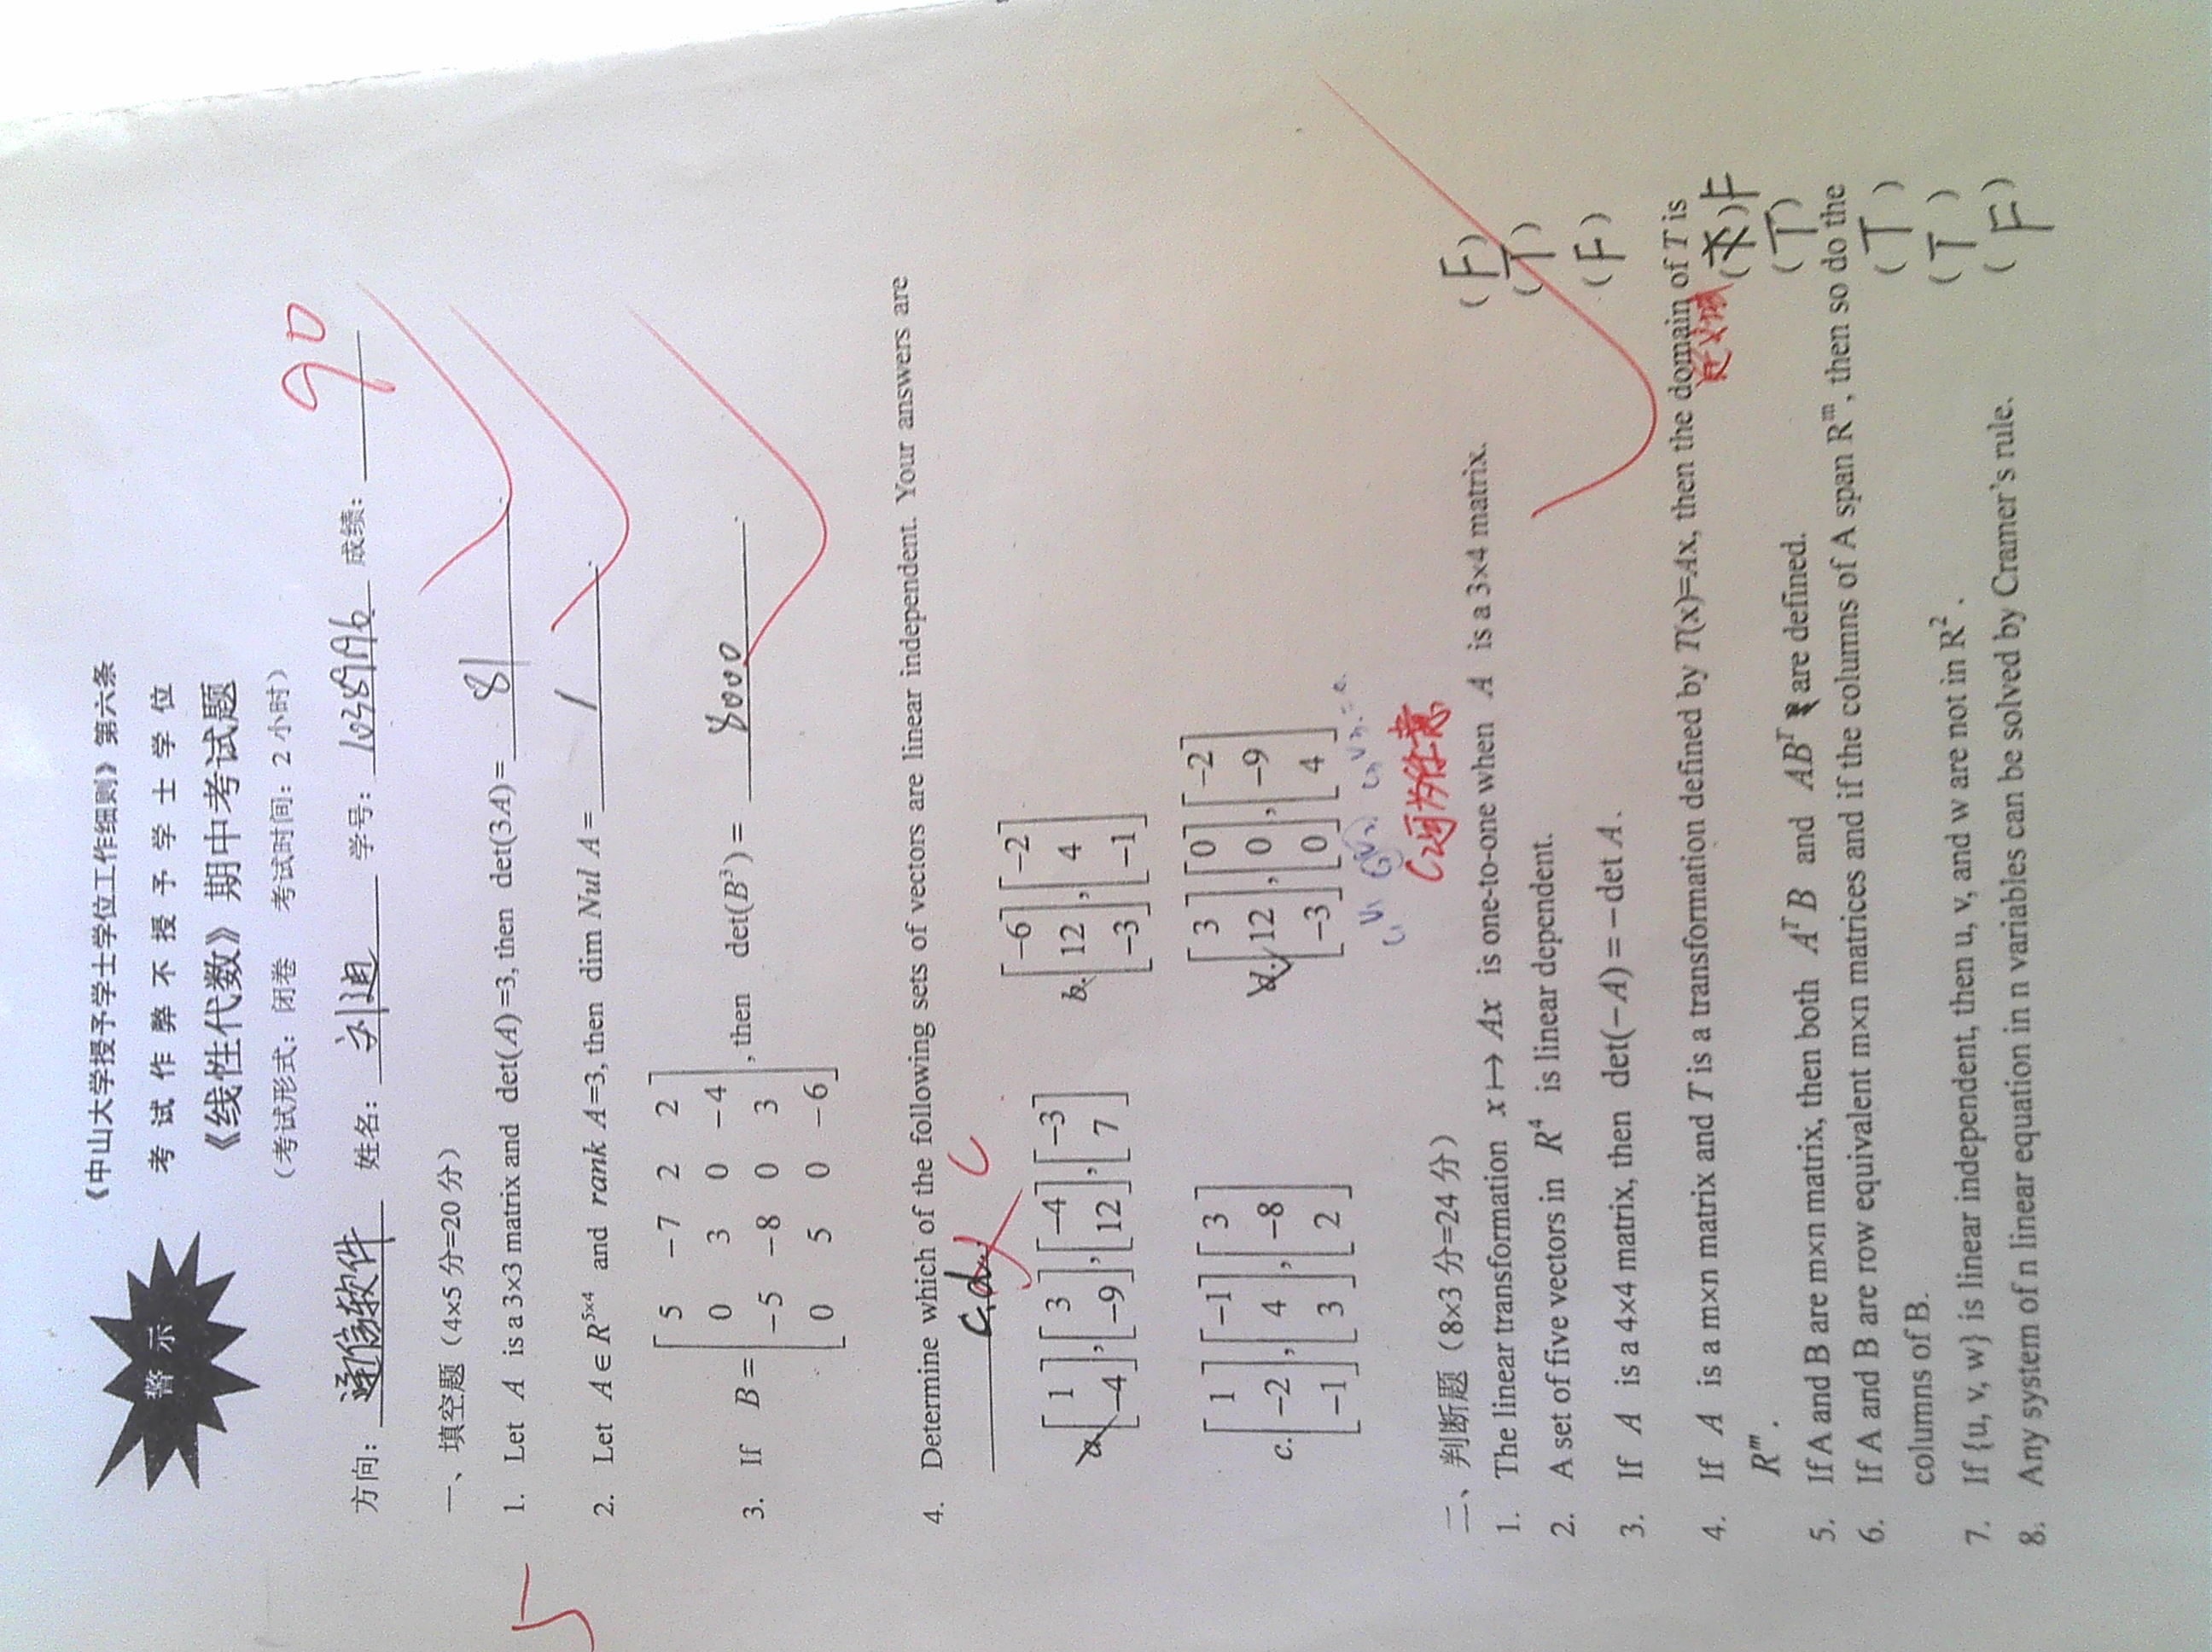 《中山大学授予学士学位工作细则》第六条
警示
考试作弊不授予学士学位
《线性代数》期中考试题
（考试形式：闭卷 考试时间：2 小时）
90
方向： 通信软件 姓名： 刘迪 学号： 成绩：
一、填空题（4×5 分=20 分）
1. Let A is a 3×3 matrix and det(A)=3, then det(3A)= 81
5
2. Let A∈R^{5×4} and rank A=3, then dim Nul A= 1
3. If B= [5 −7 2 2; 0 3 0 −4; −5 −8 0 3; 0 5 0 −6], then det(B³)= 8000
4. Determine which of the following sets of vectors are linear independent. Your answers are
c,d. C
a. [1; −4], [3; −9], [−4; 12], [−3; 7] b. [−6; 12; −3], [−2; 4; −1]
c. [1; −2; −1], [−1; 4; 3], [3; −8; 2] d. [3; 12; −3], [0; 0; 0], [−2; −9; 4]
c₁V₁ c₂V₂ c₃V₃ = 0.
C₂可为任意
二、判断题（8×3 分=24 分）
1. The linear transformation x↦Ax is one-to-one when A is a 3×4 matrix. (F)
2. A set of five vectors in R⁴ is linear dependent. (T)
3. If A is a 4×4 matrix, then det(−A)=−det A. (F)
4. If A is a m×n matrix and T is a transformation defined by T(x)=Ax, then the domain of T is
定义域
R^m. ( )F
5. If A and B are m×n matrix, then both A^T B and AB^T are defined. (T)
6. If A and B are row equivalent m×n matrices and if the columns of A span R^m, then so do the
columns of B. (T)
7. If {u, v, w} is linear independent, then u, v, and w are not in R². (T)
8. Any system of n linear equation in n variables can be solved by Cramer's rule. (F)